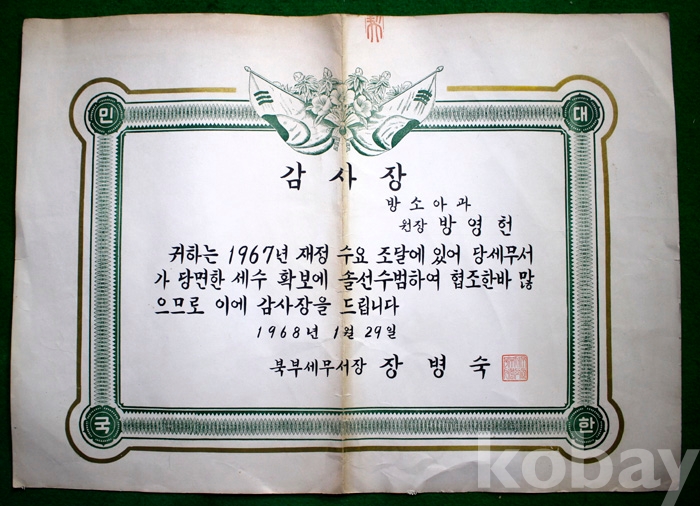 대
한
민
국
감사장
방소아과
원장 방영헌
귀하는 1967년 재정 수요 조달에 있어 당세무서
가 당면한 세수 확보에 솔선수범하여 협조한바 많
으므로 이에 감사장을 드립니다
1968년 1월 29일
북부세무서장 장병숙
kobay